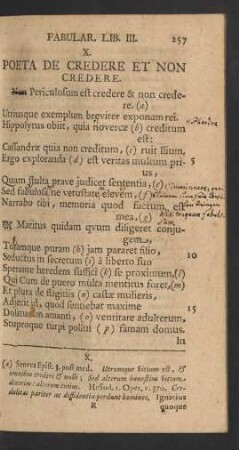 FABULAR. LIB. III. 257
X.
POETA DE CREDERE ET NON
CREDERE.
Non Periculosum est credere & non crede-
re. (a)
Utriusque exemplum breviter exponam rei.
Hippolytus obiit, quia novercæ (b) creditum
est:
Cassandræ quia non creditum, (c) ruit Ilium.
Ergo exploranda (d) est veritas multum pri- 5
us,
Quam stulta prave judicet sententia, (e)
Sed fabulosa ne vetustate elevem, (f)
Narrabo tibi, memoria quod factum est
mea, (g)
Maritus quidam qvum diligeret conju-
gem,
Togamque puram (h) jam pararet filio,
Seductus in secretum (i) à liberto suo 10
Sperante heredem suffici (k) se proximum, (l)
Qui Cum de puero multa mentitus foret, (m)
Et plura de flagitiis (n) castæ mulieris,
Adjecit id, quod sentiebat maxime
Doliturum amanti, (o) ventitare adulterum, 15
Stuproque turpi pollui (p) famam domus.
In
X.
(a) Seneca Epist. 3. post med. Utrumque vitium est, &
omnibus credere & nulli; Sed alterum honestius vitium
dixerim: alterum tutius. Hesiod. l. Oper. v. 370. Cre-
dulitas pariter ac diffidentia perdunt homines. Ignarius
R quoque